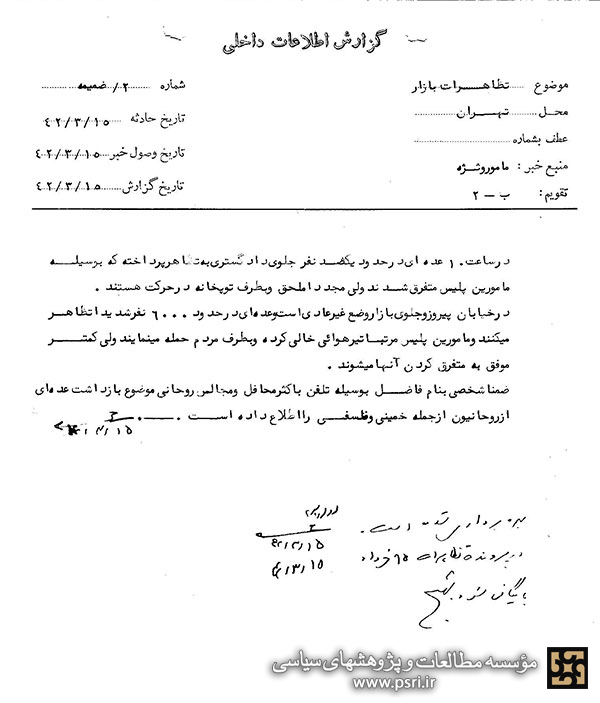 گزارش اطلاعات داخلی
موضوع ..... تظاهرات بازار
محل ........ تهران ........
عطف بشماره ........
منبع خبر : مامورویژه
تقویم : ب - ۲
شماره ..... /۲ ضمیمه .....
تاریخ حادثه ۴۲/۳/۱۵
تاریخ وصول خبر ۴۲/۳/۱۵
تاریخ گزارش ..... ۴۲/۳/۱۵
درساعت ۱۰ عده ای درحدود یکصد نفر جلوی دادگستری به تظاهر پرداخته که بوسیله
مامورین پلیس متفرق شدند ولی مجدداً ملحق وبطرف توپخانه درحرکت هستند .
درخیابان پیروز وجلوی بازار وضع غیرعادی است وعده ای درحدود ۶۰۰۰ نفر شدیداً تظاهر
میکنند ومامورین پلیس مرتباً تیرهوائی خالی کرده وبطرف مردم حمله مینمایند ولی کمتر
موفق به متفرق کردن آنها میشوند .
ضمناً شخصی بنام فاضل بوسیله تلفن باکثر محافل ومجالس روحانی موضوع بازداشت عده ای
ازروحانیون ازجمله خمینی وفلسفی را اطلاع داده است .
۴۲/۳/۱۵
بهره برداری شده است .
۴۲/۳/۱۵
در پرونده تظاهرات ۱۵ خرداد
۴۲/۳/۱۵
بایگانی شود
مؤسسه مطالعات و پژوهشهای سیاسی
www.psri.ir